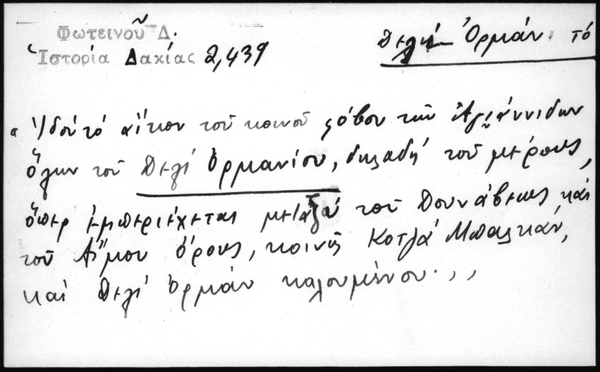 Φωτεινοῦ Δ.
Ἱστορία Δακίας 2,439
Δελῆ Ὀρμάν τό
"Ἰδού τό αἴτιον τοῦ κοινοῦ φόβου τῶν Ἀγιάννιδων
ὅλων τοῦ Δελῆ Ὀρμανίου, δηλαδή τοῦ μέρους,
ὅπερ ἐμπεριέχεται μεταξύ τοῦ Δουνάβεως καί
τοῦ Αἵμου ὄρους, κοινῶς Κοτζά Μπαλκάν,
καί Δελῆ Ὀρμάν καλουμένου.,,